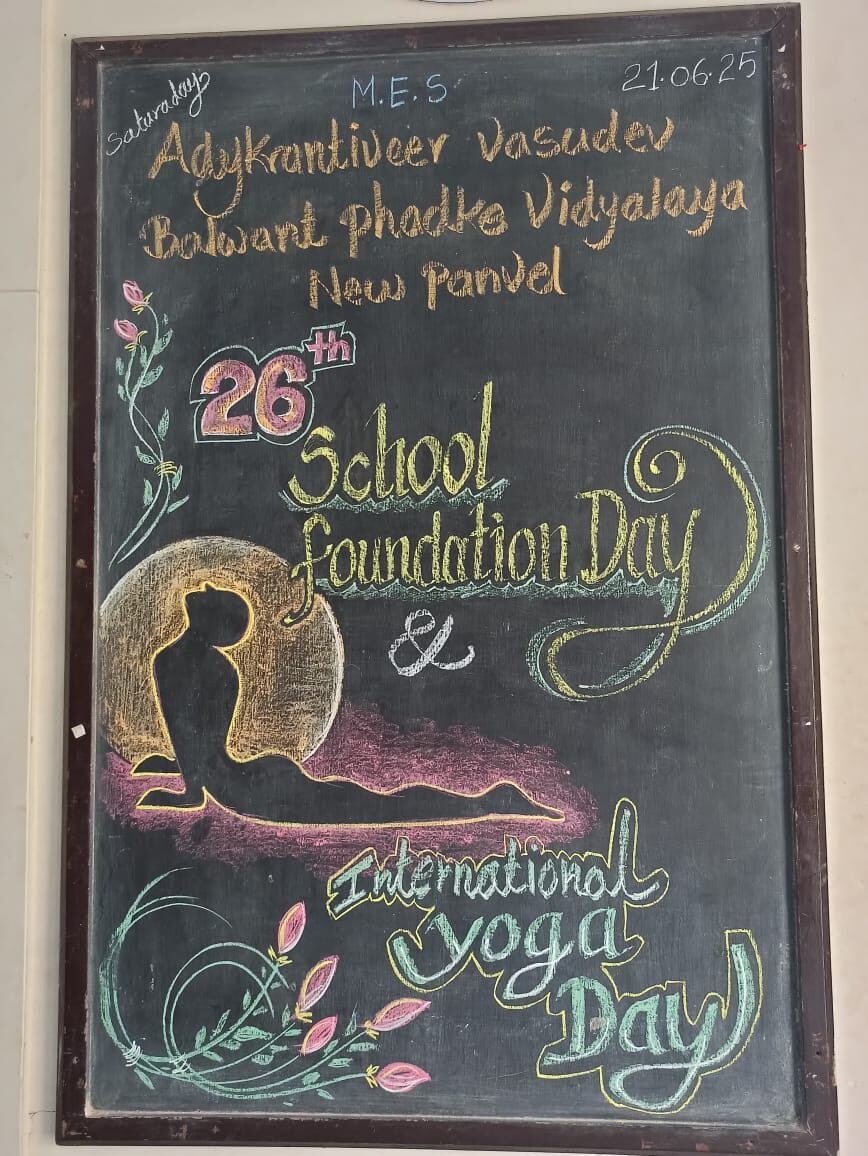 Saturaday
M.E.S
21.06.25
Adykrantiveer Vasudev
Balwant phadke Vidyalaya
New panvel
26th
School
foundation Day
&
International
yoga
Day